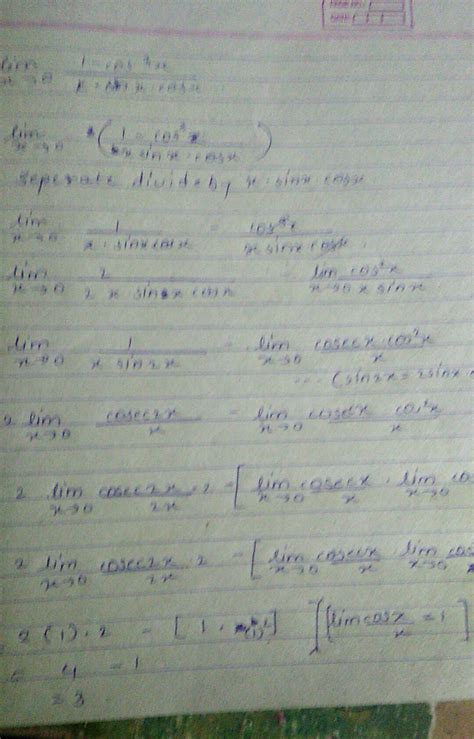 lim x→0 1 - cos³x / x · sin x · cos x
lim x→0 (1 - cos³x / x sin x · cos x)
seperate divide by x · sinx · cosx
lim x→0 1 / x · sinx cosx - cos³x / x sinx · cosx
lim x→0 2 / 2 x sin x cosx - lim x→0 cos²x / x sinx
lim x→0 1 / x sin2x - lim x→0 cosecx cos²x / x
... (sin2x = 2sinx
2 lim x→0 cosec2x / x - lim x→0 cosecx / x cos²x
2 lim x→0 cosec2x / 2x · 2 - [ lim x→0 cosecx / x · lim x→0 cos
2 lim x→0 cosec2x / 2x · 2 - [ lim x→0 cosecx / x · lim x→0 cos
2 (1) · 2 - [ 1 · (1)² ] [ lim cosx / x = 1 ]
= 4 - 1
= 3